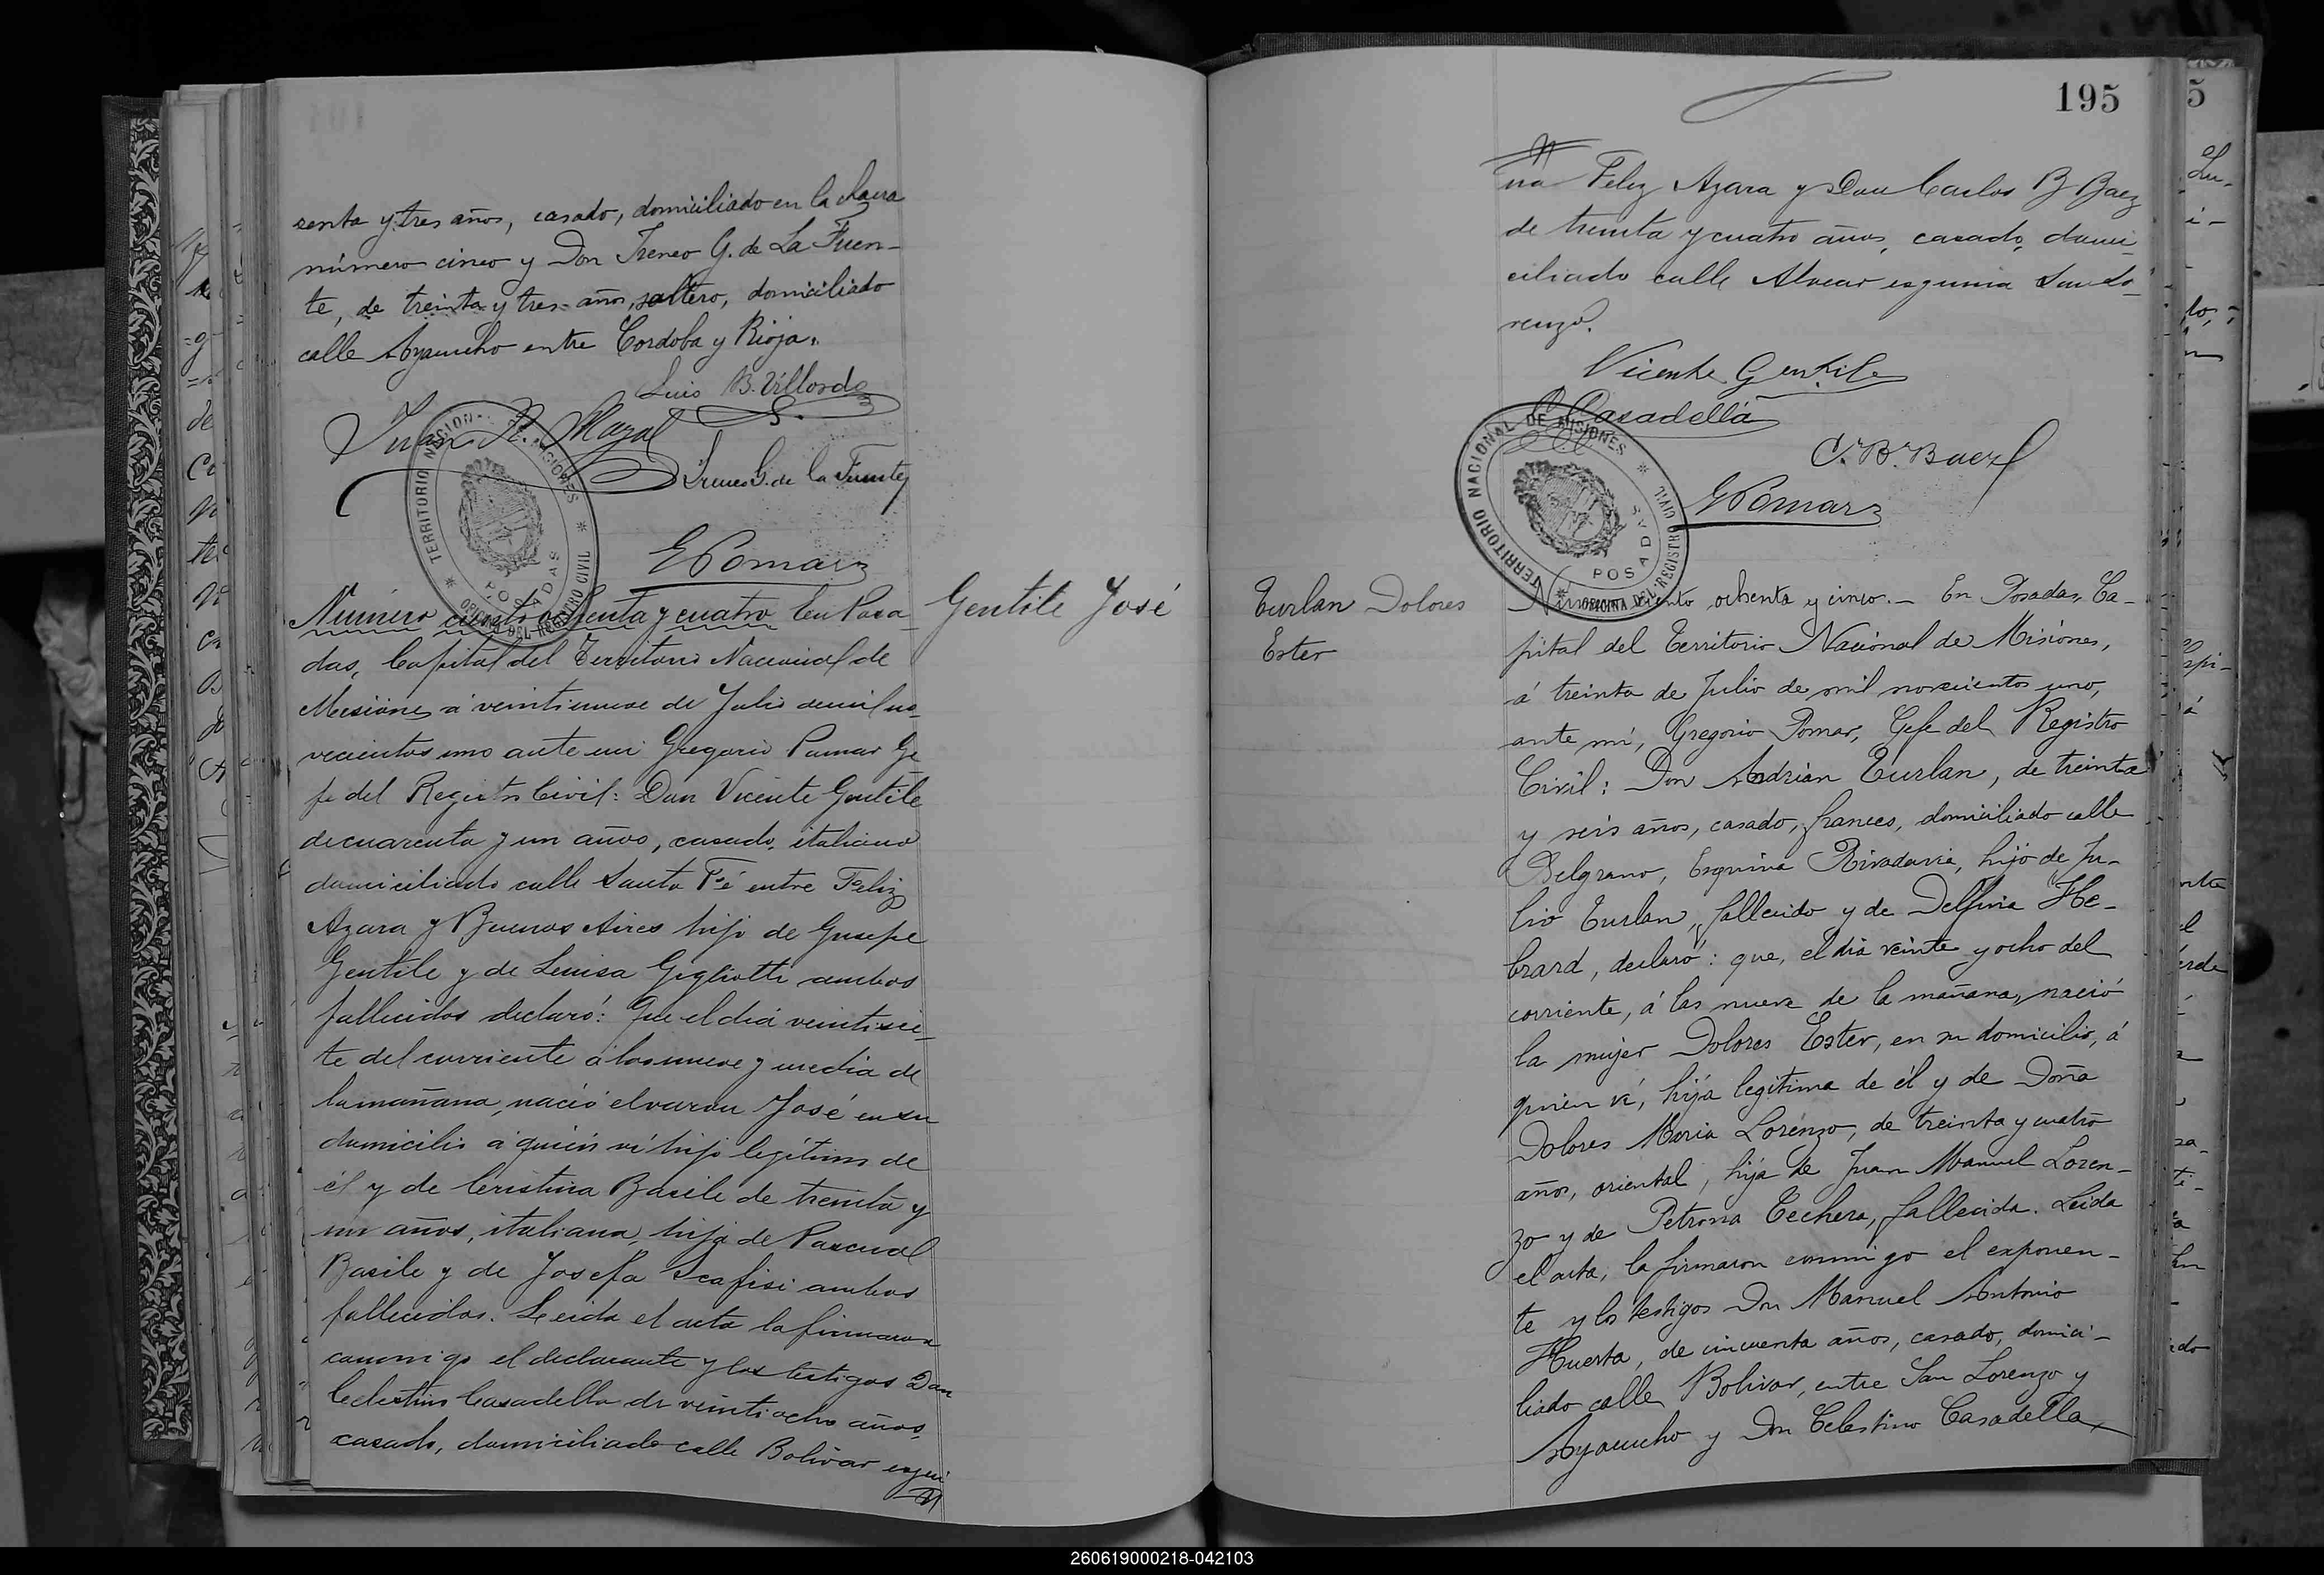 senta y tres años, casado, domiciliado en la chacra
número cinco y Don Ireneo G. de La Fuen-
te, de treinta y tres años, soltero, domiciliado
calle Ayacucho entre Cordoba y Rioja.
Luis B. Villordo
Juan R. Mazal
Ireneo G. de la Fuente
TERRITORIO NACIONAL DE MISIONES
POSADAS
OFICINA DEL REGISTRO CIVIL
G Pomar
Gentile José
Número ciento ochenta y cuatro En Posa-
das, Capital del Territorio Nacional de
Misiones a veintinueve de Julio de mil no-
vecientos uno ante mi Gregorio Pomar Ge-
fe del Registro Civil: Don Vicente Gentile
de cuarenta y un años, casado, italiano
domiciliado calle Santa Fé entre Feliz
Azara y Buenos Aires hijo de Gusepe
Gentile y de Luisa Gigliotti ambos
fallecidos declaró: Que el dia veintisie-
te del corriente a las nueve y media de
la mañana, nació el varon José en su
domicilio a quien ví hijo legítimo de
él y de Cristina Basile de treinta y
un años, italiana, hija de Pascual
Basile y de Josefa Scafisi ambos
fallecidos. Leida el acta la firmaron
conmigo el declarante y los testigos Don
Celestino Casadella de veintiocho años,
casado, domiciliado calle Bolivar esqui
195
na Feliz Azara y Don Carlos B Baez
de treinta y cuatro años, casado, domi-
ciliado calle Alvear esquina San Lo-
renzo.
Vicente Gentile
C. Casadellá
C. B. Baez
G Pomar
TERRITORIO NACIONAL DE MISIONES
POSADAS
OFICINA DEL REGISTRO CIVIL
Turlan Dolores
Ester
Número ciento ochenta y cinco.- En Posadas, Ca-
pital del Territorio Nacional de Misiones,
á treinta de Julio de mil novecientos uno,
ante mí, Gregorio Pomar, Gefe del Registro
Civil: Don Adrian Turlan, de treinta
y seis años, casado, frances, domiciliado calle
Belgrano, Esquina Rivadavia, hijo de Ju-
lio Turlan, fallecido y de Delfina He-
brard, declaró: que, el dia veinte y ocho del
corriente, á las nueve de la mañana, nació
la mujer Dolores Ester, en su domicilio, á
quien ví, hija legítima de él y de Doña
Dolores Maria Lorenzo, de treinta y cuatro
años, oriental, hija de Juan Manuel Loren-
zo y de Petrona Techera, fallecida. Leida
el acta, la firmaron conmigo el exponen-
te y los testigos Don Manuel Antonio
Huerta, de cincuenta años, casado, domici-
liado calle Bolivar, entre San Lorenzo y
Ayacucho y Don Celestino Casadella,
260619000218-042103